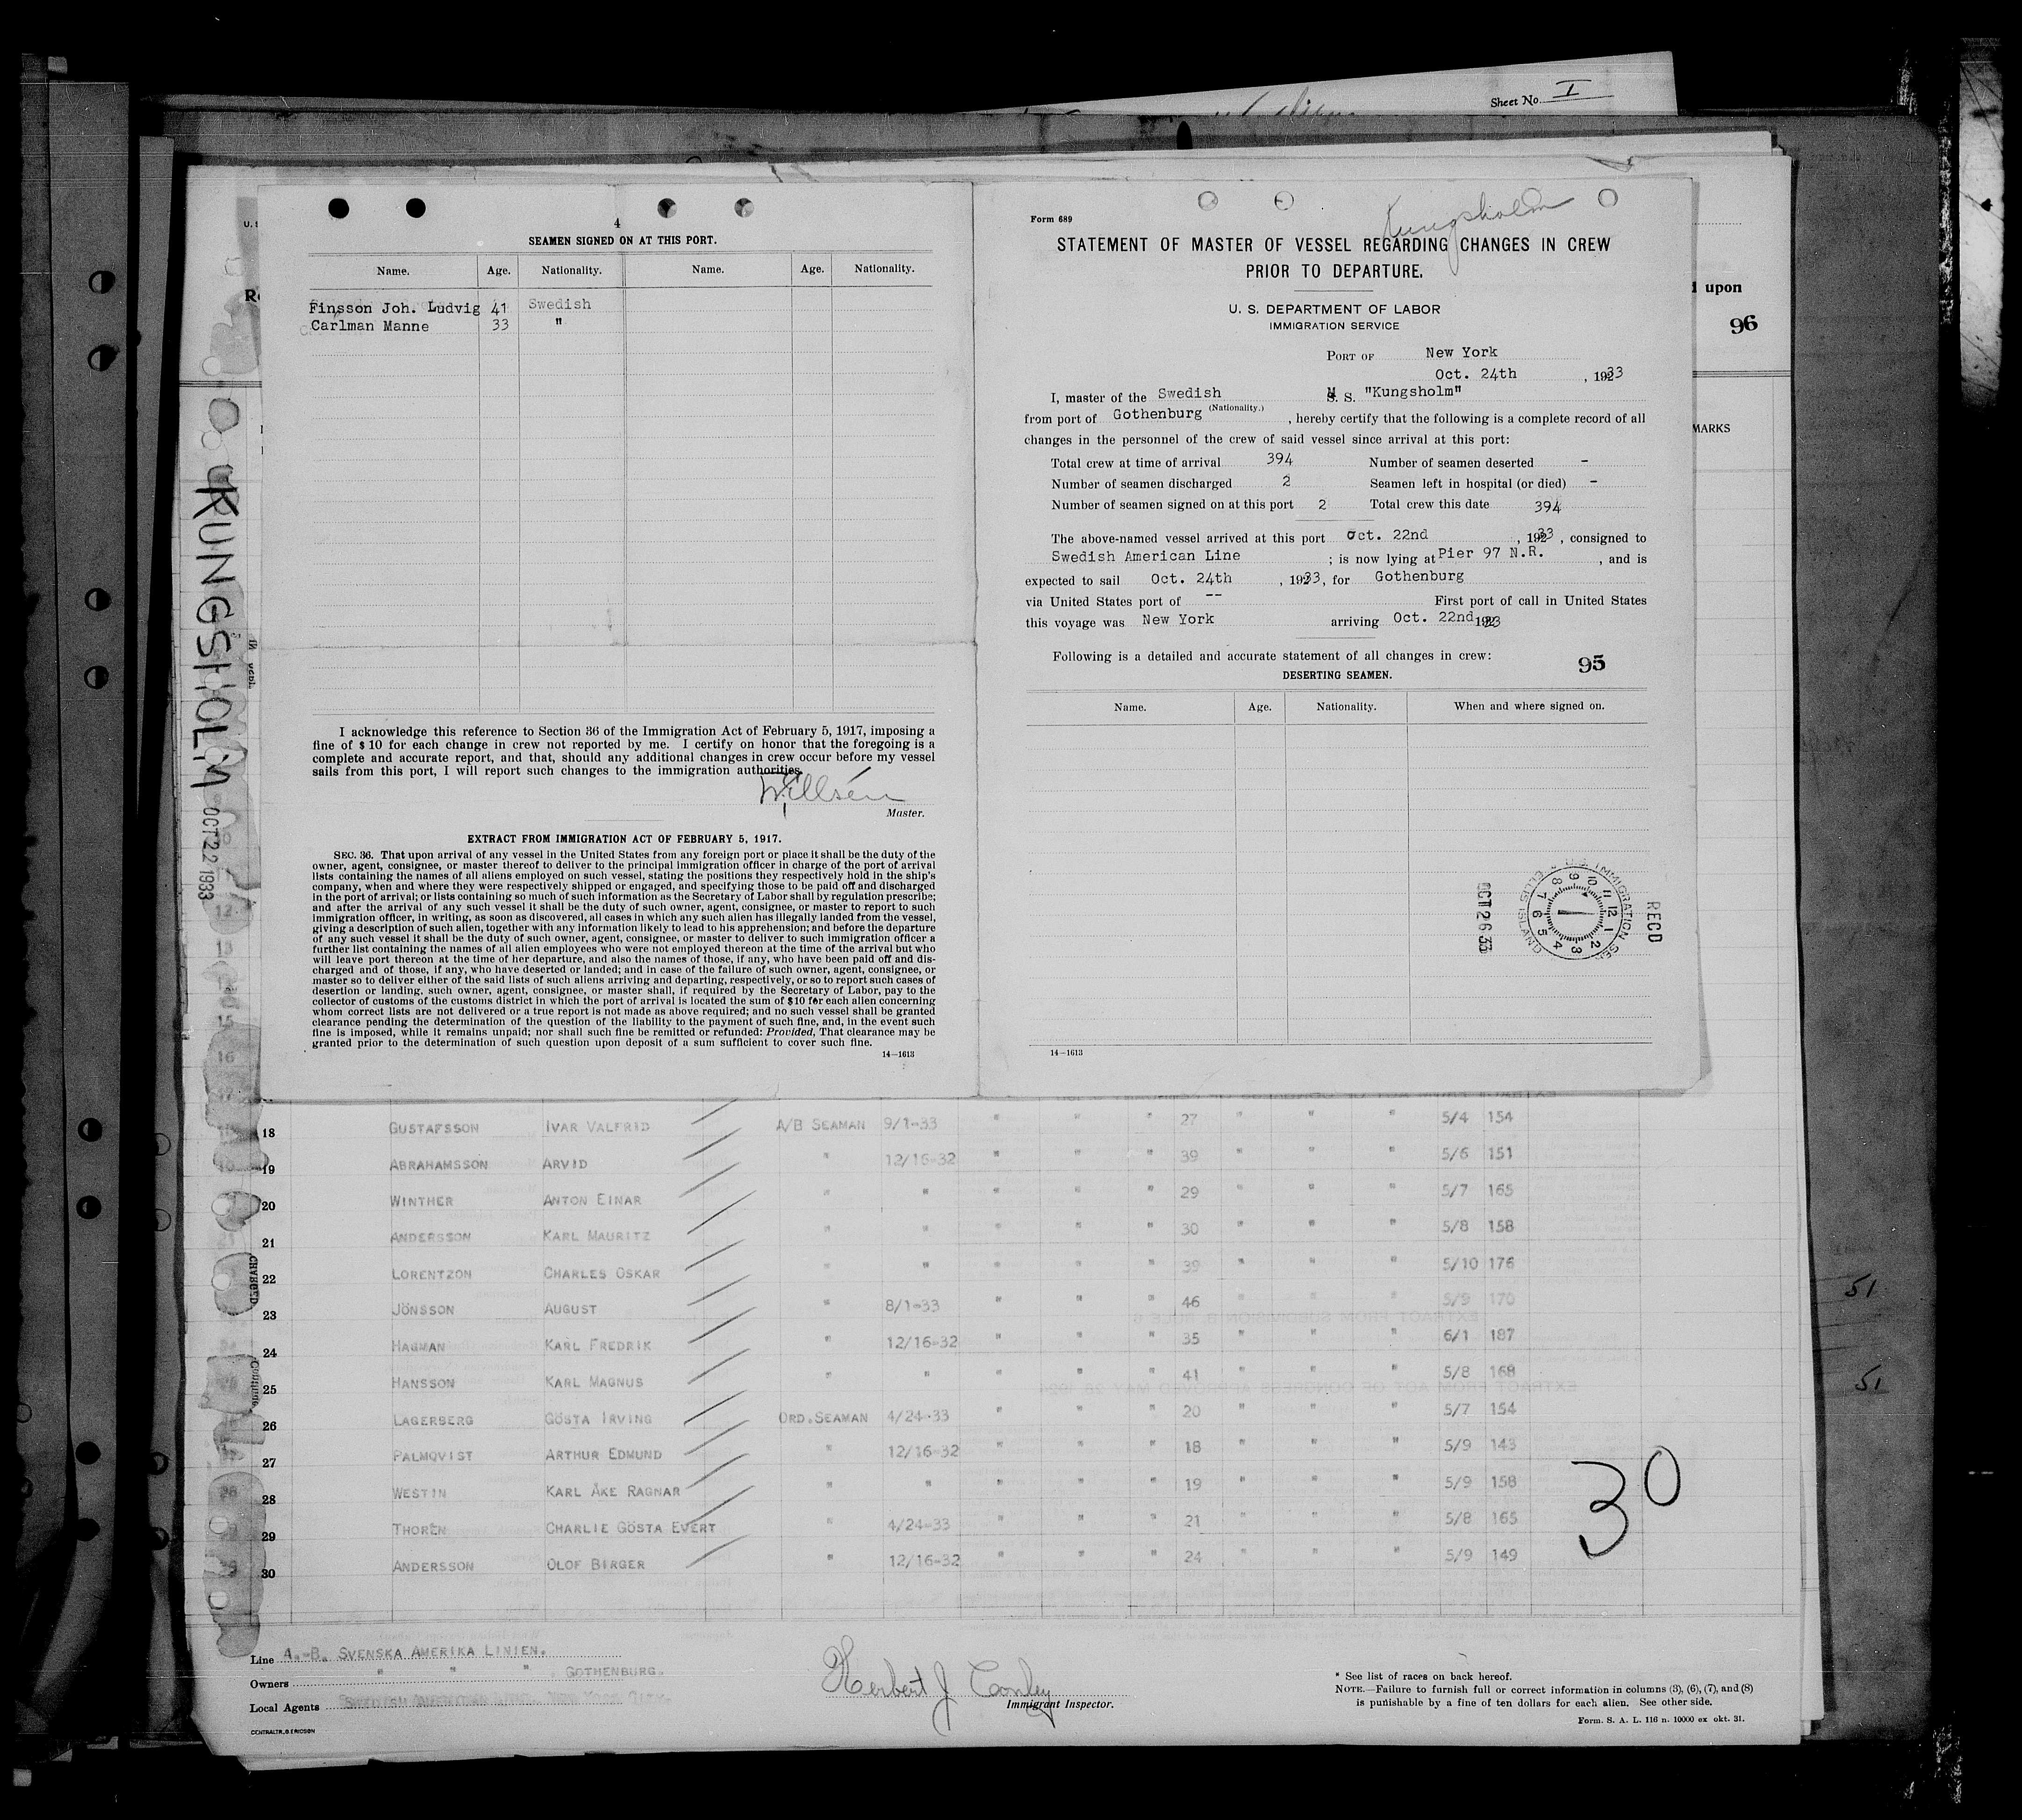 Sheet No. I
4
SEAMEN SIGNED ON AT THIS PORT.
Name. Age. Nationality. Name. Age. Nationality.
Finsson Joh. Ludvig 41 Swedish
Carlman Manne 33 "
I acknowledge this reference to Section 36 of the Immigration Act of February 5, 1917, imposing a
fine of $10 for each change in crew not reported by me. I certify on honor that the foregoing is a
complete and accurate report, and that, should any additional changes in crew occur before my vessel
sails from this port, I will report such changes to the immigration authorities.
Master.
EXTRACT FROM IMMIGRATION ACT OF FEBRUARY 5, 1917.
SEC. 36. That upon arrival of any vessel in the United States from any foreign port or place it shall be the duty of the
owner, agent, consignee, or master thereof to deliver to the principal immigration officer in charge of the port of arrival
lists containing the names of all aliens employed on such vessel, stating the positions they respectively hold in the ship's
company, when and where they were respectively shipped or engaged, and specifying those to be paid off and discharged
in the port of arrival; or lists containing so much of such information as the Secretary of Labor shall by regulation prescribe;
and after the arrival of any such vessel it shall be the duty of such owner, agent, consignee, or master to report to such
immigration officer, in writing, as soon as discovered, all cases in which any such alien has illegally landed from the vessel,
giving a description of such alien, together with any information likely to lead to his apprehension; and before the departure
of any such vessel it shall be the duty of such owner, agent, consignee, or master to deliver to such immigration officer a
further list containing the names of all alien employees who were not employed thereon at the time of the arrival but who
will leave port thereon at the time of her departure, and also the names of those, if any, who have been paid off and dis-
charged and of those, if any, who have deserted or landed; and in case of the failure of such owner, agent, consignee, or
master so to deliver either of the said lists of such aliens arriving and departing, respectively, or so to report such cases of
desertion or landing, such owner, agent, consignee, or master shall, if required by the Secretary of Labor, pay to the
collector of customs of the customs district in which the port of arrival is located the sum of $10 for each alien concerning
whom correct lists are not delivered or a true report is not made as above required; and no such vessel shall be granted
clearance pending the determination of the question of the liability to the payment of such fine, and, in the event such
fine is imposed, while it remains unpaid; nor shall such fine be remitted or refunded: Provided, That clearance may be
granted prior to the determination of such question upon deposit of a sum sufficient to cover such fine.
14—1613
Kungsholm
Form 689
STATEMENT OF MASTER OF VESSEL REGARDING CHANGES IN CREW
PRIOR TO DEPARTURE.
U. S. DEPARTMENT OF LABOR
IMMIGRATION SERVICE
PORT OF New York
Oct. 24th, 1933
I, master of the Swedish M. S. "Kungsholm"
(Nationality.)
from port of Gothenburg, hereby certify that the following is a complete record of all
changes in the personnel of the crew of said vessel since arrival at this port:
Total crew at time of arrival 394 Number of seamen deserted -
Number of seamen discharged 2 Seamen left in hospital (or died) -
Number of seamen signed on at this port 2 Total crew this date 394
The above-named vessel arrived at this port Oct. 22nd, 1933, consigned to
Swedish American Line; is now lying at Pier 97 N.R., and is
expected to sail Oct. 24th, 1933, for Gothenburg
via United States port of -- First port of call in United States
this voyage was New York arriving Oct. 22nd 1933
Following is a detailed and accurate statement of all changes in crew: 95
DESERTING SEAMEN.
Name. Age. Nationality. When and where signed on.
RECD
U.S. IMMIGRATION SER
ELLIS ISLAND
OCT 26 33
14—1613
upon
96
MARKS
KUNGSHOLM OCT 22 1933
18 GUSTAFSSON IVAR VALFRID A/B SEAMAN 9/1-33 " " " 27 " " " 5/4 154
19 ABRAHAMSSON ARVID " 12/16-32 " " " 39 " " " 5/6 151
20 WINTHER ANTON EINAR " " " " " 29 " " " 5/7 165
21 ANDERSSON KARL MAURITZ " " " " " 30 " " " 5/8 158
22 LORENTZON CHARLES OSKAR " " " " " 39 " " " 5/10 176
23 JÖNSSON AUGUST " 8/1-33 " " " 46 " " " 5/9 170
24 HAGMAN KARL FREDRIK " 12/16-32 " " " 35 " " " 6/1 187
25 HANSSON KARL MAGNUS " " " " " 41 " " " 5/8 168
26 LAGERBERG GÖSTA IRVING ORD.SEAMAN 4/24-33 " " " 20 " " " 5/7 154
27 PALMQVIST ARTHUR EDMUND " 12/16-32 " " " 18 " " " 5/9 143
28 WESTIN KARL ÅKE RAGNAR " " " " " 19 " " " 5/9 158
29 THORÉN CHARLIE GÖSTA EVERT " 4/24-33 " " " 21 " " " 5/8 165
30 ANDERSSON OLOF BIRGER " 12/16-32 " " " 24 " " " 5/9 149
30
51
51
Line A.-B. SVENSKA AMERIKA LINIEN.
Owners " " " . GOTHENBURG.
Local Agents SWEDISH AMERICAN LINE. NEW YORK CITY.
CENTRALTR. G. ERICSON
Herbert J Conley
Immigrant Inspector.
* See list of races on back hereof.
NOTE.—Failure to furnish full or correct information in columns (3), (6), (7), and (8)
is punishable by a fine of ten dollars for each alien. See other side.
Form. S. A. L. 116 n. 10000 ex okt. 31.